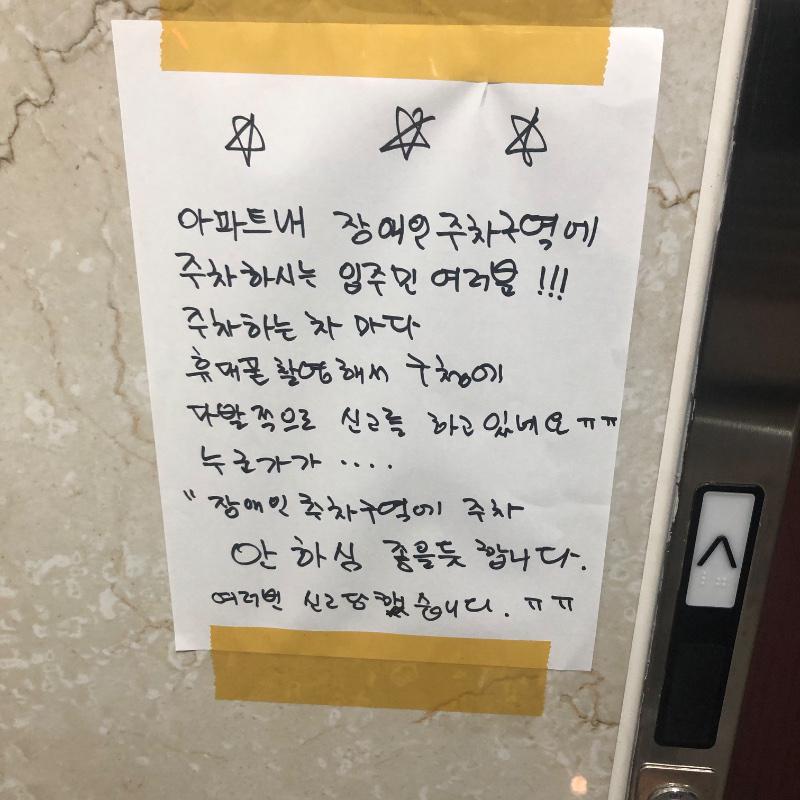 ☆ ☆ ☆
아파트내 장애인주차구역에
주차하시는 입주민 여러분 !!!
주차하는 차 마다
휴대폰 촬영해서 구청에
다발적으로 신고를 하고있네요 ㅠㅠ
누군가가 ....
" 장애인 주차구역에 주차
안 하심 좋을듯 합니다.
여러번 신고당했습니다. ㅠㅠ